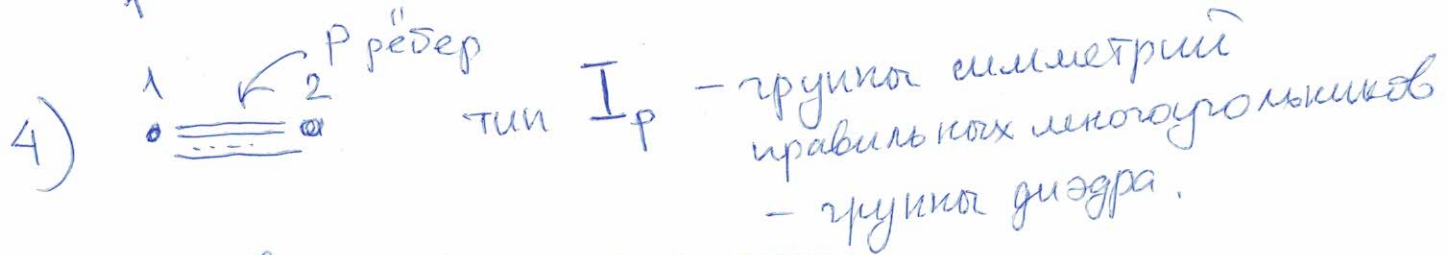 p рёбер
1 2
4) тип I_p - группы симметрий
правильных многоугольников
- группы диэдра.